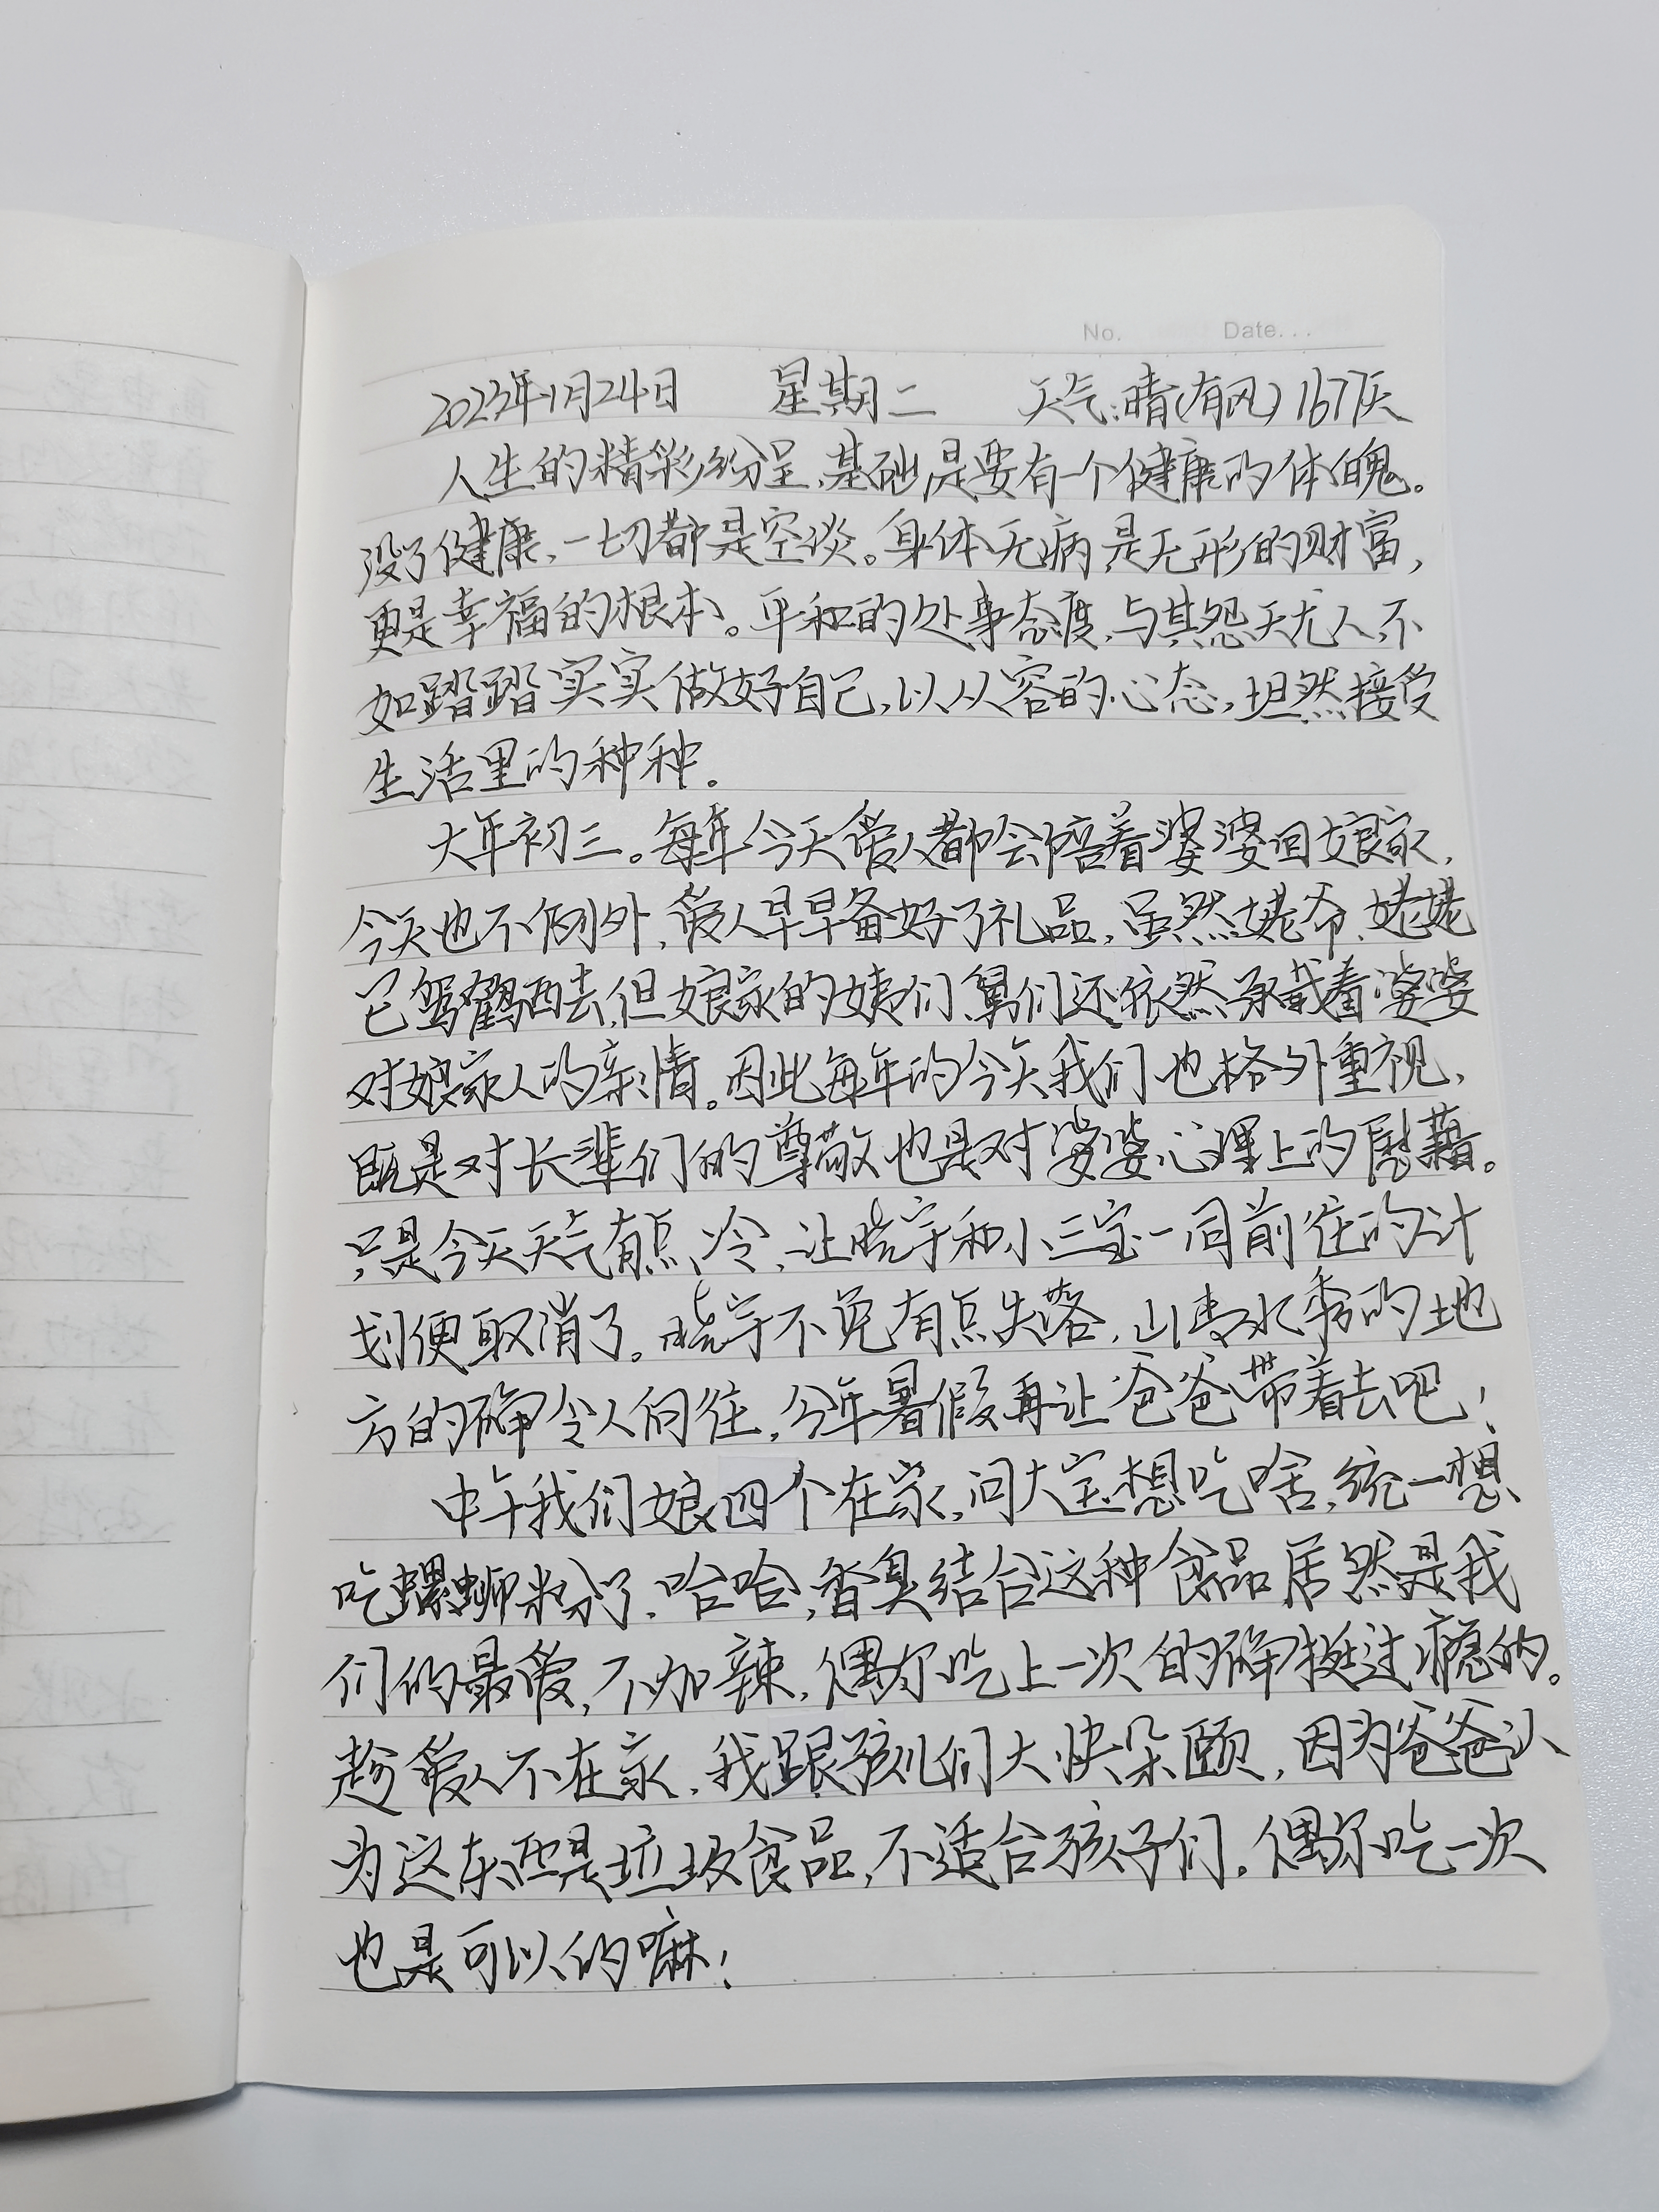 No.   Date...
2023年1月24日 星期二 天气:晴(有风) 167天
人生的精彩纷呈,基础是要有一个健康的体魄。
没了健康,一切都是空谈。身体无病是无形的财富,
更是幸福的根本。平和的处事态度,与其怨天尤人,不
如踏踏实实做好自己,以从容的心态,坦然接受
生活里的种种。
大年初三。每年今天爱人都会陪着婆婆回娘家,
今天也不例外,爱人早早备好了礼品,虽然姥爷、姥姥
已驾鹤西去,但娘家的姨们、舅们还依然承载着婆婆
对娘家人的亲情。因此每年的今天我们也格外重视,
既是对长辈们的尊敬也是对婆婆心理上的慰藉。
只是今天天气有点冷,让晓宇和小三宝一同前往的计
划便取消了。晓宇不免有点失落,山青水秀的地
方的确令人向往,今年暑假再让爸爸带着去吧!
中午我们娘四个在家,问大宝想吃啥,统一想
吃螺蛳粉了,哈哈,香臭结合这种食品居然是我
们的最爱,不加辣,偶尔吃上一次的确挺过瘾的。
趁爱人不在家,我跟孩儿们大快朵颐,因为爸爸认
为这东西是垃圾食品,不适合孩子们,偶尔吃一次
也是可以的嘛!